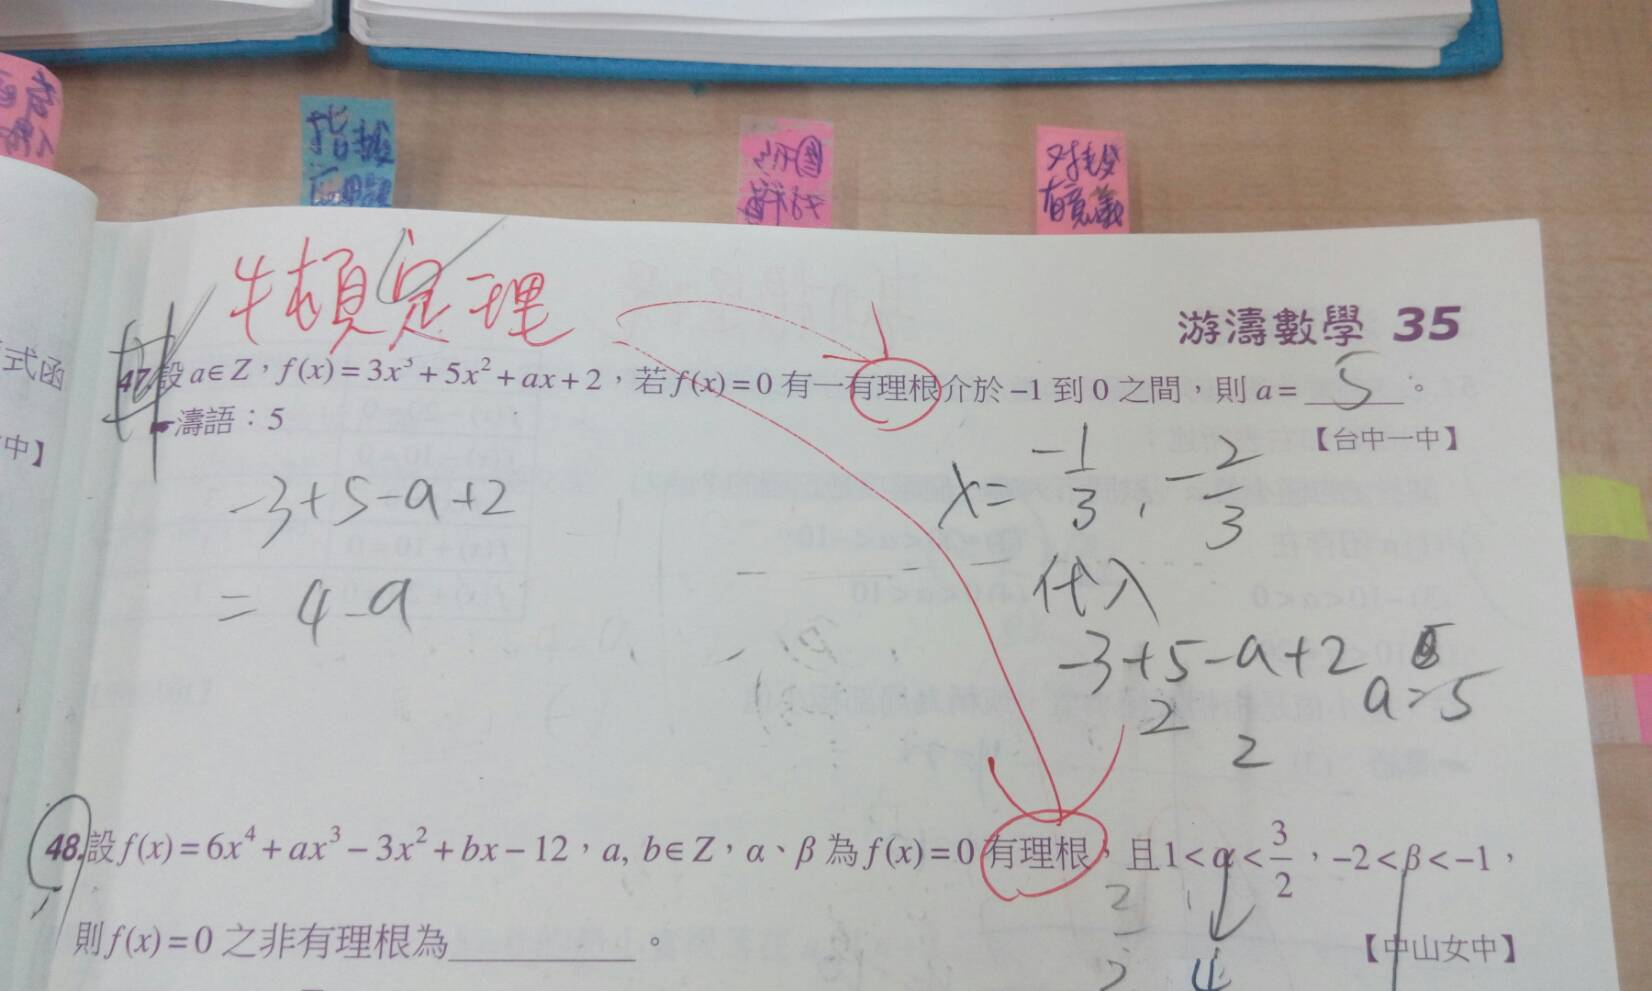 指數
应用題
对數
有意義
牛頓定理
游濤數學 35
47.設 a∈Z，f(x)=3x³+5x²+ax+2，若 f(x)=0 有一有理根介於 −1 到 0 之間，則 a= 5 。
濤語：5
【台中一中】
式函
中】
-3+5-a+2
= 4-a
x= -1/3 , -2/3
代入
-3+5-a+2
a=5
2
2
48.設 f(x)=6x⁴+ax³−3x²+bx−12，a, b∈Z，α、β 為 f(x)=0 有理根，且 1<α<3/2，−2<β<−1，
則 f(x)=0 之非有理根為______。
【中山女中】
4